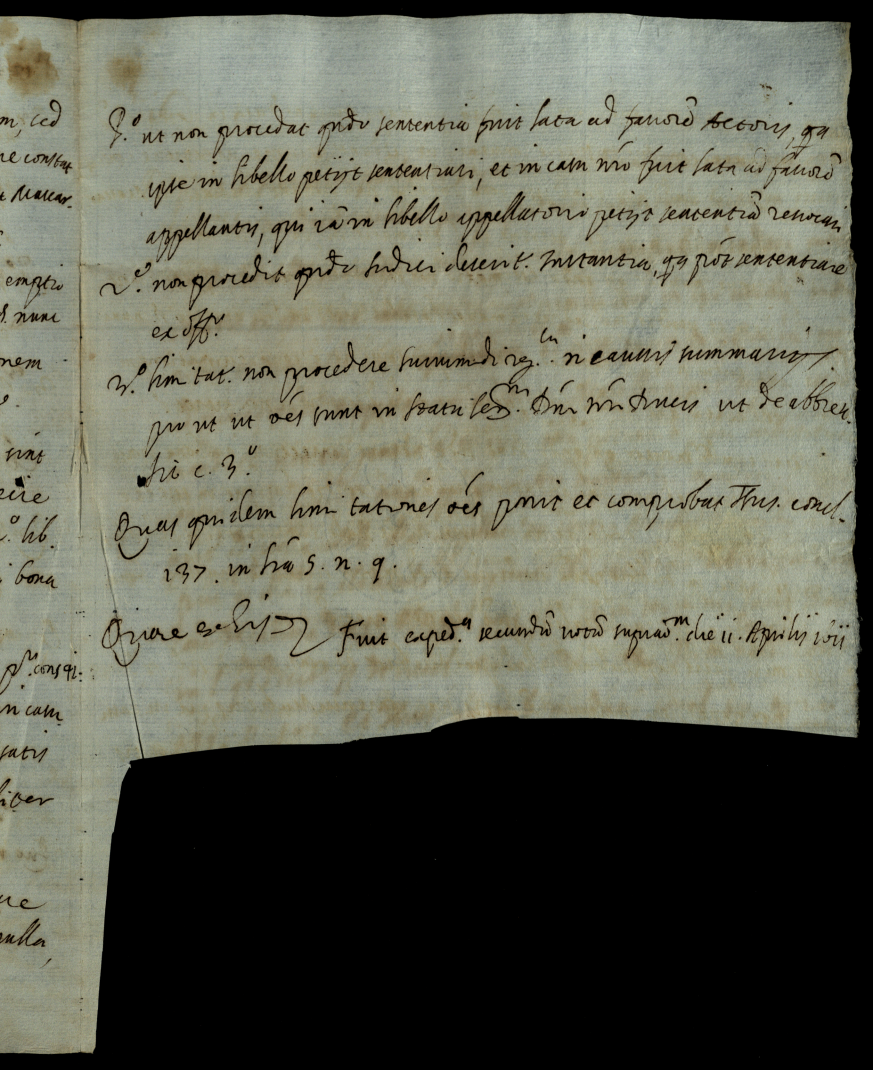 m, sed
ne constat
emptio
nunc
nem
sint
lib.
bona
consti:
in casu
satis
nulla,
P.º ut non procedat qñdo sententia fuit lata ad favorẽ Actoris, qa
ipse in libello petijt sententiari, et in casu nr̃o fuit lata ad favorẽ
appellantis, qui iã in libello appellatorio petijt sententiã revocari
2.º non procedit qñdo Judici deserit. Instantia, qa põt sententiare
ex off.º
3.º limitat. non procedere in causis summarijs
prout ut oẽs sunt in statu Ser.mi Dñi nr̃i Ducis ut de abbrev.
lit c. 3.º
Quas quidem limitationes oẽs ponit et comprobat Thus. concl.
137. in lrã S. n. 9.
Quare ex his Fuit exped.a secundũ votũ suprad.m die ii. Aprilis 1611